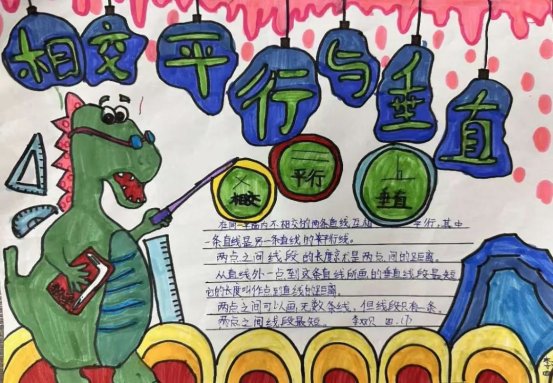 相交平行与垂直
相交
平行
垂直
在同一平面内不相交的两条直线互相平行,其中
一条直线是另一条直线的平行线。
两点之间线段的长度就是两点间的距离。
从直线外一点到这条直线所画的垂直线段最短
它的长度叫作点到直线的距离。
两点之间可以画无数条线,但线段只有一条
两点之间线段最短。